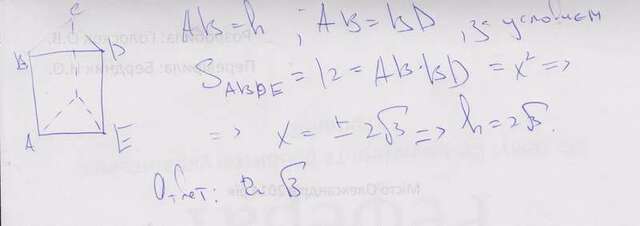 C
B D
A E
AB=h ; AB=BD, за условием
S_ABDE = 12 = AB·BD = x² =>
=> x = ± 2√3 => h = 2√3.
Ответ: 2√3
Розробила: Голосков О.В.
Перевірила: Бердник И.О.
місто Олександрія 201
РЕФЕРАТ